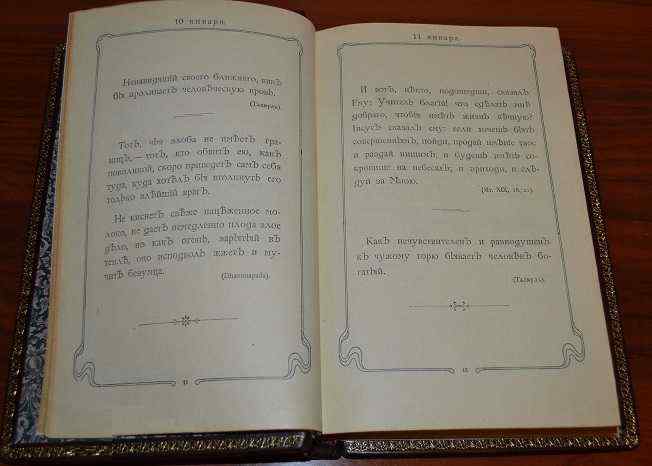 10 января.
Ненавидящій своего ближняго, какъ
бы проливаетъ человѣческую кровь.
(Талмудъ).
Тотъ, чья злоба не имѣетъ гра-
ницъ, — тотъ, кто обвитъ ею, какъ
повиликой, скоро приведетъ самъ себя
туда, куда хотѣлъ бы втолкнуть его
только злѣйшій врагъ.
Не киснетъ свѣже надоенное мо-
локо, не даетъ немедленно плода злое
дѣло, но какъ огонь, зарытый въ
теплѣ, оно исподволь жжетъ и му-
читъ безумца.
(Dhammapada).
11
11 января.
И вотъ, нѣкто, подошедши, сказалъ
Ему: Учитель благій! что сдѣлать мнѣ
добраго, чтобы имѣть жизнь вѣчную?
Іисусъ сказалъ ему: если хочешь быть
совершеннымъ, пойди, продай имѣніе твое
и раздай нищимъ, и будешь имѣть со-
кровище на небесахъ; и приходи, и слѣ-
дуй за Мною.
(Мѳ. XIX, 16, 21).
Какъ нечувствителенъ и равнодушенъ
къ чужому горю бываетъ человѣкъ бо-
гатый.
(Талмудъ).
12